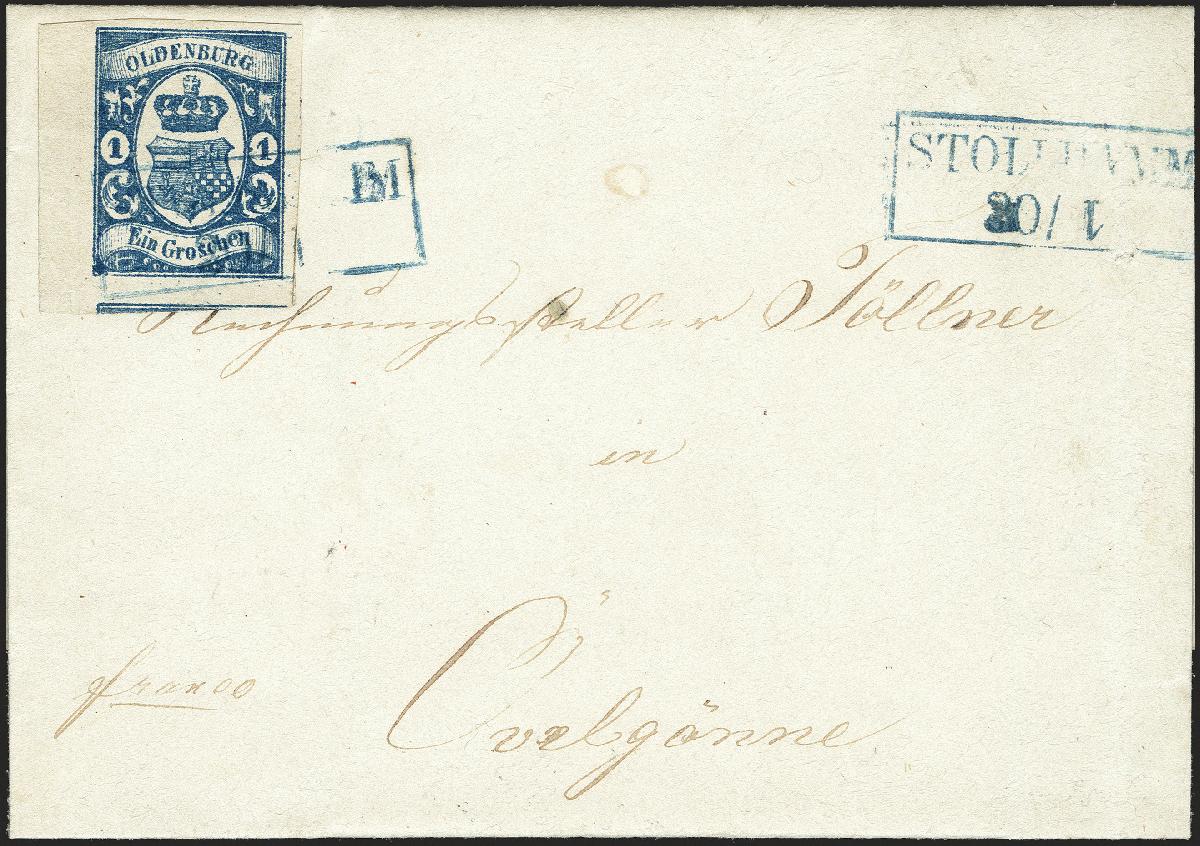 OLDENBURG
1 1
Ein Groschen
STOLLHAMM
Rechnungssteller Töllner
in
Övelgönne
franco